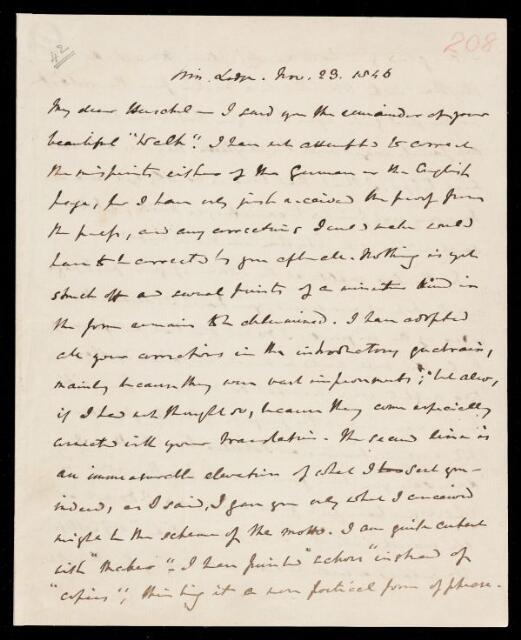 42
208
Trin. Lodge. Nov. 23. 1846
My dear Herschel – I send you the remainder of your
beautiful "Walk". I have not attempted to correct
the misprints either of the German or the English
page, for I have only just received the proof from
the press, and any corrections I could make would
have to be corrected by you after all. Nothing is yet
struck off and several points of a minuter kind in
the form remain to be determined. I have adopted
all your corrections in the introductory quatrain,
mainly because they were vast improvements; but also,
if I had not thought so, because they come especially
connected with your translation. The second line is
an immeasurable elevation of what I had sent you –
indeed, as I said, I gave you only what I conceived
might be the scheme of the motto. I am quite content
with "makes" – I have printed "echoes" instead of
"copies", thinking it a more poetical form of phrase.